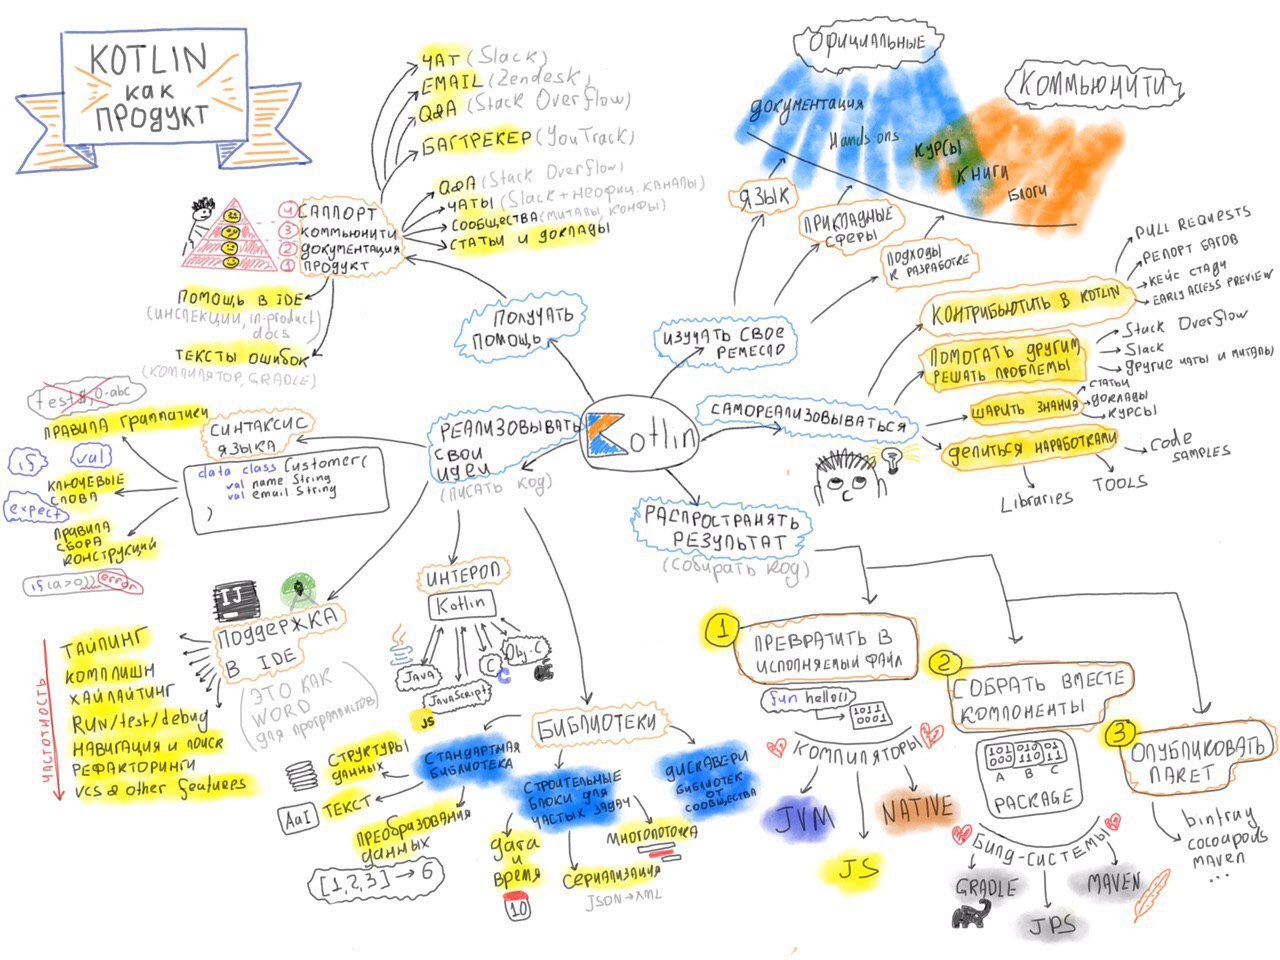 KOTLIN
как
продукт
ЧАТ (Slack)
EMAIL (Zendesk)
Q&A (Stack Overflow)
БАГТРЕКЕР (YouTrack)
Q&A (Stack Overflow)
ЧАТЫ (Slack + неофиц. каналы)
сообщества (митапы, конфы)
статьи и доклады
4 саппорт
3 коммьюнити
2 документация
1 продукт
помощь в IDE
(инспекции, in-product
docs)
тексты ошибок
(компилятор, GRADLE)
получать
помощь
официальные
коммьюнити
документация
Hands ons
курсы
книги
блоги
язык
прикладные
сферы
подходы
к разработке
изучать свое
ремесло
контрибьютить в KOTLIN
PULL REQUESTS
репорт багов
кейс стади
EARLY ACCESS PREVIEW
помогать другим
решать проблемы
Stack Overflow
Slack
другие чаты и митапы)
шарить знания
статьи
доклады
курсы
делиться наработками
code
SAMPLES
TOOLS
Libraries
самореализовываться
Kotlin
реализовывать
свои
идеи
(писать код)
синтаксис
языка
data class Customer(
val name: String
val email: String
)
правила грамматики
is
val
ключевые
слова
expect
правила
сбора
конструкций
if(a>0)) error
распространять
результат
(собирать код)
IJ
поддержка
в IDE
(это как
WORD
для программистов)
частотность
тайпинг
комплишн
хайлайтинг
Run/test/debug
навигация и поиск
рефакторинги
VCS & other features
интероп
Kotlin
JAVA
JavaScript
JS
C
C
Obj-C
библиотеки
стандартная
библиотека
структуры
данных
текст
AaI
преобразования
данных
[1,2,3] → 6
строительные
блоки для
частых задач
дата
и
время
10
сериализация
JSON → XML
многопоточка
дискавери
библиотек
от
сообщества
1
превратить в
исполняемый файл
fun hello()
1011
0001
компиляторы
JVM
JS
NATIVE
2
собрать вместе
компоненты
101 010 01
000 110 11
A B C
PACKAGE
билд-системы
GRADLE
JPS
MAVEN
3
опубликовать
пакет
bintray
cocoapods
maven
...